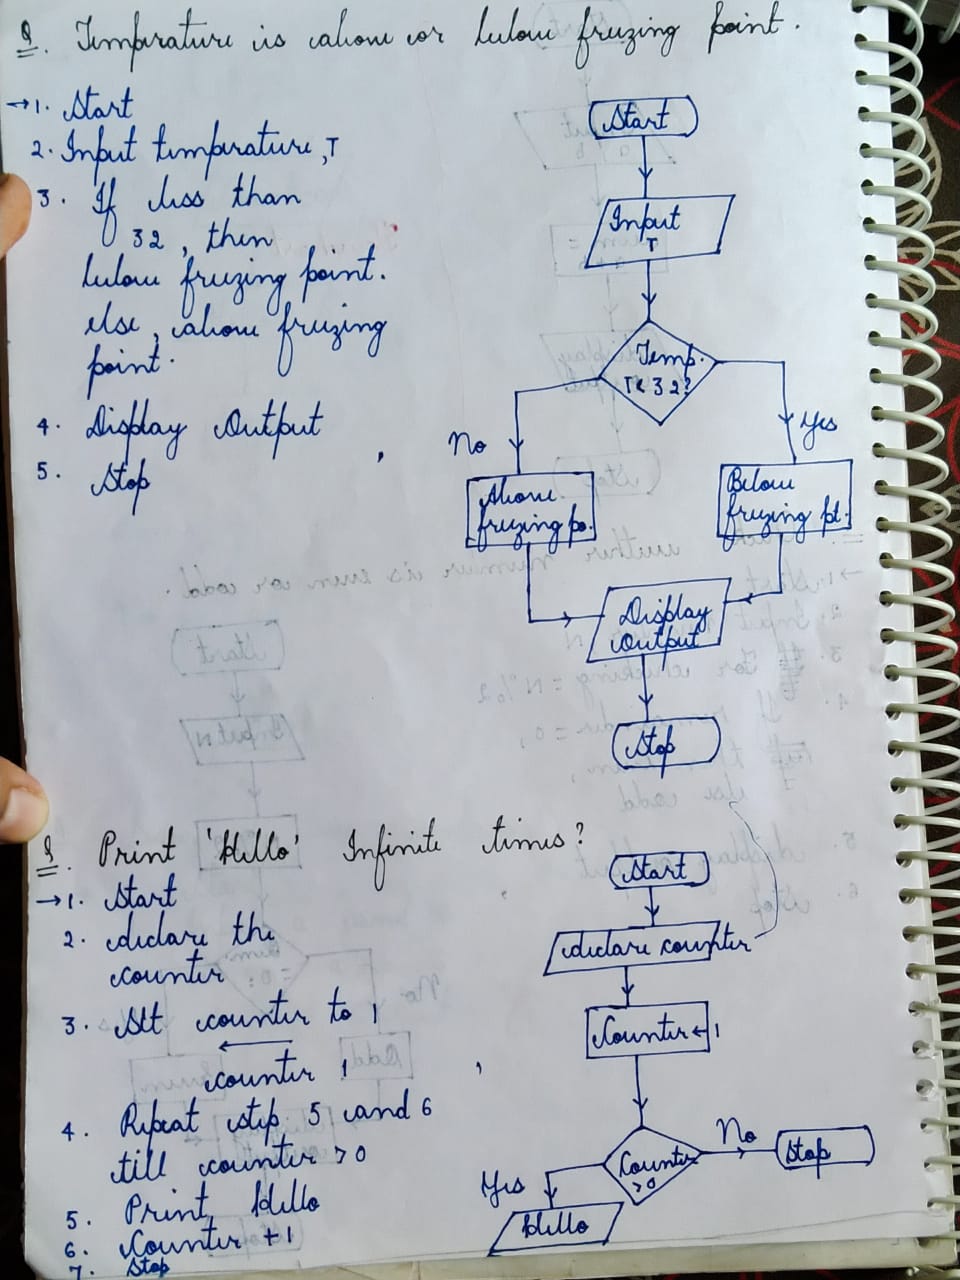 Q. Temperature is above or below freezing point.
→1. Start
2. Input temperature, T
3. If less than
32, then
below freezing point.
else, above freezing
point.
4. Display Output
5. Stop
Start
Input
T
Temp.
T<32?
No
Yes
Above
freezing po.
Below
freezing pt.
Display
Output
Stop
Q. Print 'Hello' Infinite times?
→1. Start
2. declare the
counter
3. Set counter to 1
←
counter 1
4. Repeat step 5 and 6
till counter >0
5. Print Hello
6. Counter +1
7. Stop
Start
declare counter
Counter←1
Counter
>0
No
Stop
Yes
Hello